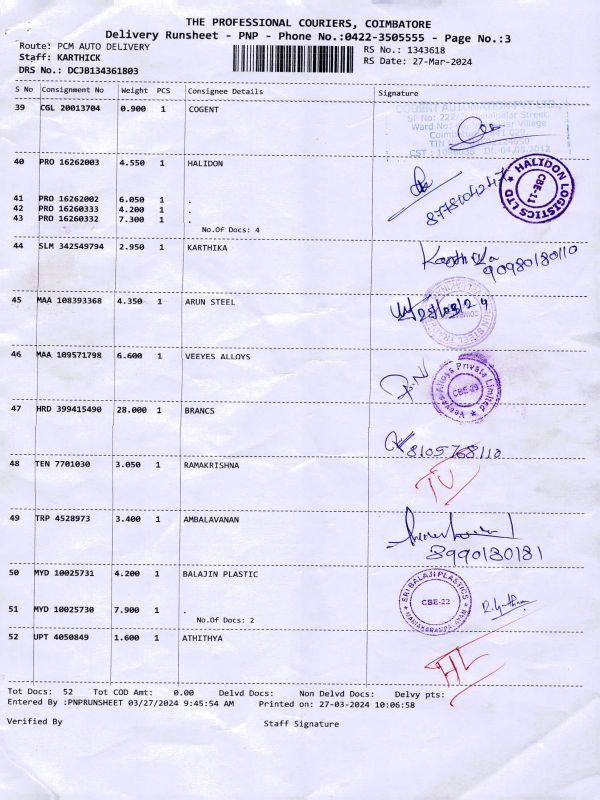 THE PROFESSIONAL COURIERS, COIMBATORE
Delivery Runsheet - PNP - Phone No.:0422-3505555 - Page No.:3
Route: PCM AUTO DELIVERY
RS No.: 1343618
Staff: KARTHICK
RS Date: 27-Mar-2024
DRS No.: DCJB134361803
S No Consignment No Weight PCS Consignee Details Signature
39 CGL 20013704 0.900 1 COGENT
COGENT AUTOMATION PVT LTD
40 PRO 16262003 4.550 1 HALIDON
HALIDON LOGISTICS LTD
CBE-11
41 PRO 16262002 6.050 1 .
42 PRO 16260333 4.200 1 .
43 PRO 16260332 7.300 1 .
No.Of Docs: 4
44 SLM 342549794 2.950 1 KARTHIKA
90980180110
45 MAA 108393368 4.350 1 ARUN STEEL
46 MAA 109571798 6.600 1 VEEYES ALLOYS
Veeyes Alloys Private Limited
CBE-29
47 HRD 399415490 28.000 1 BRANCS
8105768110
48 TEN 7701030 3.050 1 RAMAKRISHNA
49 TRP 4528973 3.400 1 AMBALAVANAN
8990180181
50 MYD 10025731 4.200 1 BALAJIN PLASTIC
SRI BALAJI PLASTICS
CBE-22
51 MYD 10025730 7.900 1 .
No.Of Docs: 2
52 UPT 4050849 1.600 1 ATHITHYA
HL
Tot Docs: 52 Tot COD Amt: 0.00 Delvd Docs: Non Delvd Docs: Delvy pts:
Entered By :PNPRUNSHEET 03/27/2024 9:45:54 AM Printed on: 27-03-2024 10:06:58
Verified By Staff Signature